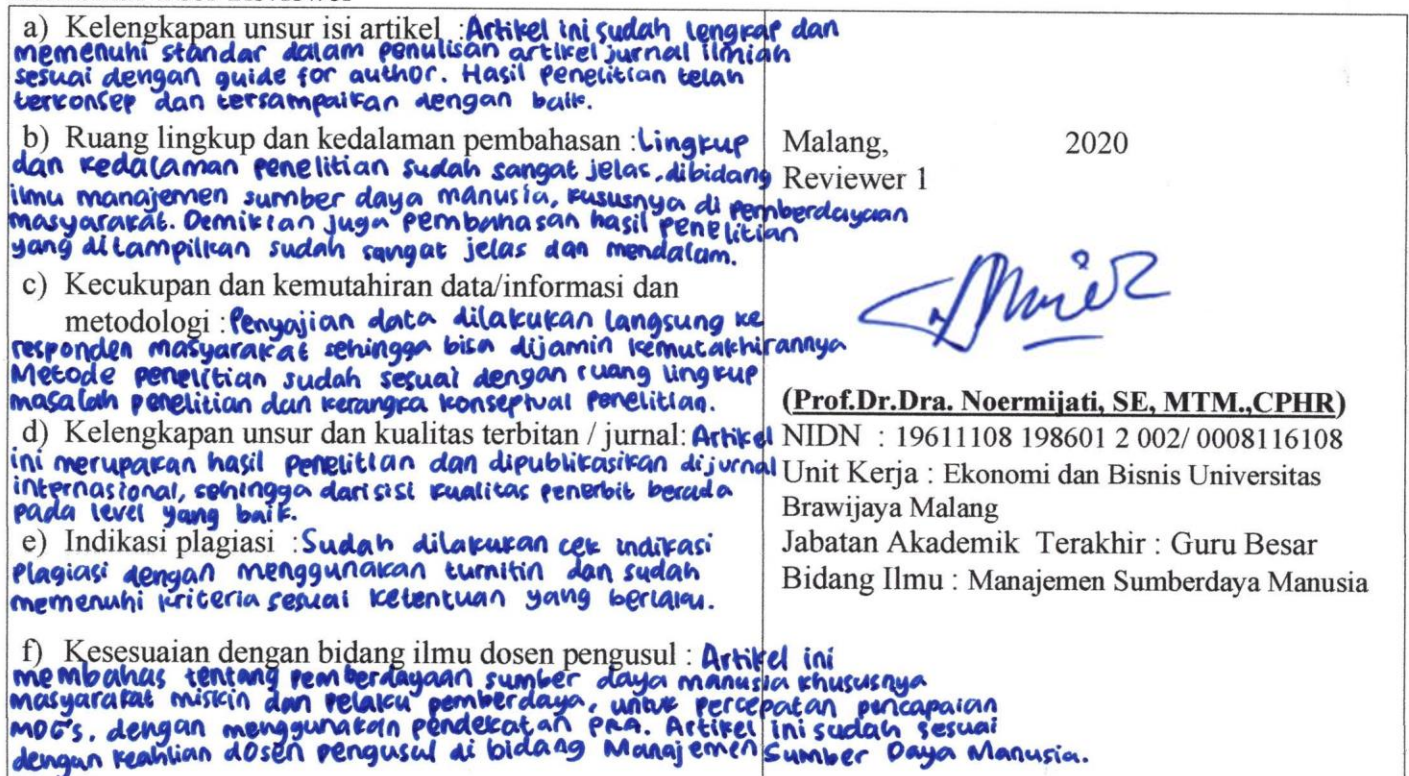 a) Kelengkapan unsur isi artikel : Artikel ini sudah lengkap dan
memenuhi standar dalam penulisan artikel jurnal ilmiah
sesuai dengan guide for author. Hasil Penelitian telah
terkonsep dan tersampaikan dengan baik.
b) Ruang lingkup dan kedalaman pembahasan : Lingkup
dan kedalaman penelitian sudah sangat jelas, dibidang
ilmu manajemen sumber daya manusia, kususnya di pemberdayaan
masyarakat. Demikian juga pembahasan hasil penelitian
yang ditampilkan sudah sangat jelas dan mendalam.
c) Kecukupan dan kemutahiran data/informasi dan
metodologi : Penyajian data dilakukan langsung ke
responden masyarakat sehingga bisa dijamin kemutakhirannya
Metode penelitian sudah sesuai dengan ruang lingkup
masalah penelitian dan kerangka konseptual penelitian.
d) Kelengkapan unsur dan kualitas terbitan / jurnal: Artikel
ini merupakan hasil penelitian dan dipublikasikan di jurnal
internasional, sehingga dari sisi kualitas penerbit berada
pada level yang baik.
e) Indikasi plagiasi : Sudah dilakukan cek indikasi
Plagiasi dengan menggunakan turnitin dan sudah
memenuhi kriteria sesuai ketentuan yang berlaku.
f) Kesesuaian dengan bidang ilmu dosen pengusul : Artikel ini
membahas tentang pemberdayaan sumber daya manusia khususnya
masyarakat miskin dan pelaku pemberdaya, untuk percepatan pencapaian
MDG's, dengan menggunakan pendekatan PRA. Artikel ini sudah sesuai
dengan keahlian dosen pengusul di bidang Manajemen Sumber Daya Manusia.
Malang, 2020
Reviewer 1
(Prof.Dr.Dra. Noermijati, SE, MTM.,CPHR)
NIDN : 19611108 198601 2 002/ 0008116108
Unit Kerja : Ekonomi dan Bisnis Universitas
Brawijaya Malang
Jabatan Akademik Terakhir : Guru Besar
Bidang Ilmu : Manajemen Sumberdaya Manusia